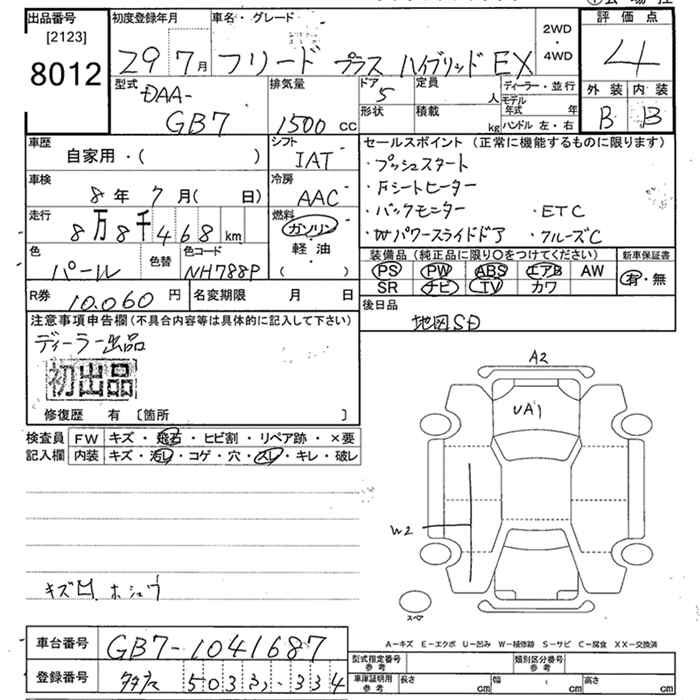 出品番号 初度登録年月 車名・グレード 評価点
[2123]
8012
29 7月 フリード プラス ハイブリッド EX 2WD・4WD 4
型式 排気量 ドア 定員 ディーラー・並行 外装 内装
DAA-
GB7 1500cc 5 人 モデル年式 年 B B
形状 積載 kg ハンドル 左・右
車歴 シフト セールスポイント (正常に機能するものに限ります)
自家用・( ) IAT ・プッシュスタート
車検 冷房 ・Fシートヒーター
8年 7月( 日) AAC ・バックモニター ・ETC
走行 燃料 ・Wパワースライドドア ・クルーズC
8万8千468km ガソリン
軽油
( )
色 色替 色コード 装備品 (純正品に限り○をつけてください) 新車保証書
パール NH788P PS PW ABS エアB AW 有・無
SR ナビ TV カワ
R券 10.060円 名変期限 月 日 後日品
地図SD
注意事項申告欄(不具合内容等は具体的に記入して下さい)
ディーラー出品
初出品
修復歴 有 〔箇所 〕
検査員 FW キズ・飛石・ヒビ割・リペア跡・×要
記入欄 内装 キズ・汚レ・コゲ・穴・スレ・キレ・破レ
A2
UA1
W2
キズ凹 ホシュウ
スペア
A−キズ E−エクボ U−凹み W−補修跡 S−サビ C−腐食 XX−交換済
車台番号 GB7-1041687
型式指定番号 参考 類別区分番号 参考
登録番号 503 334
車庫証明用 参考 長さ cm 幅 cm 高さ cm